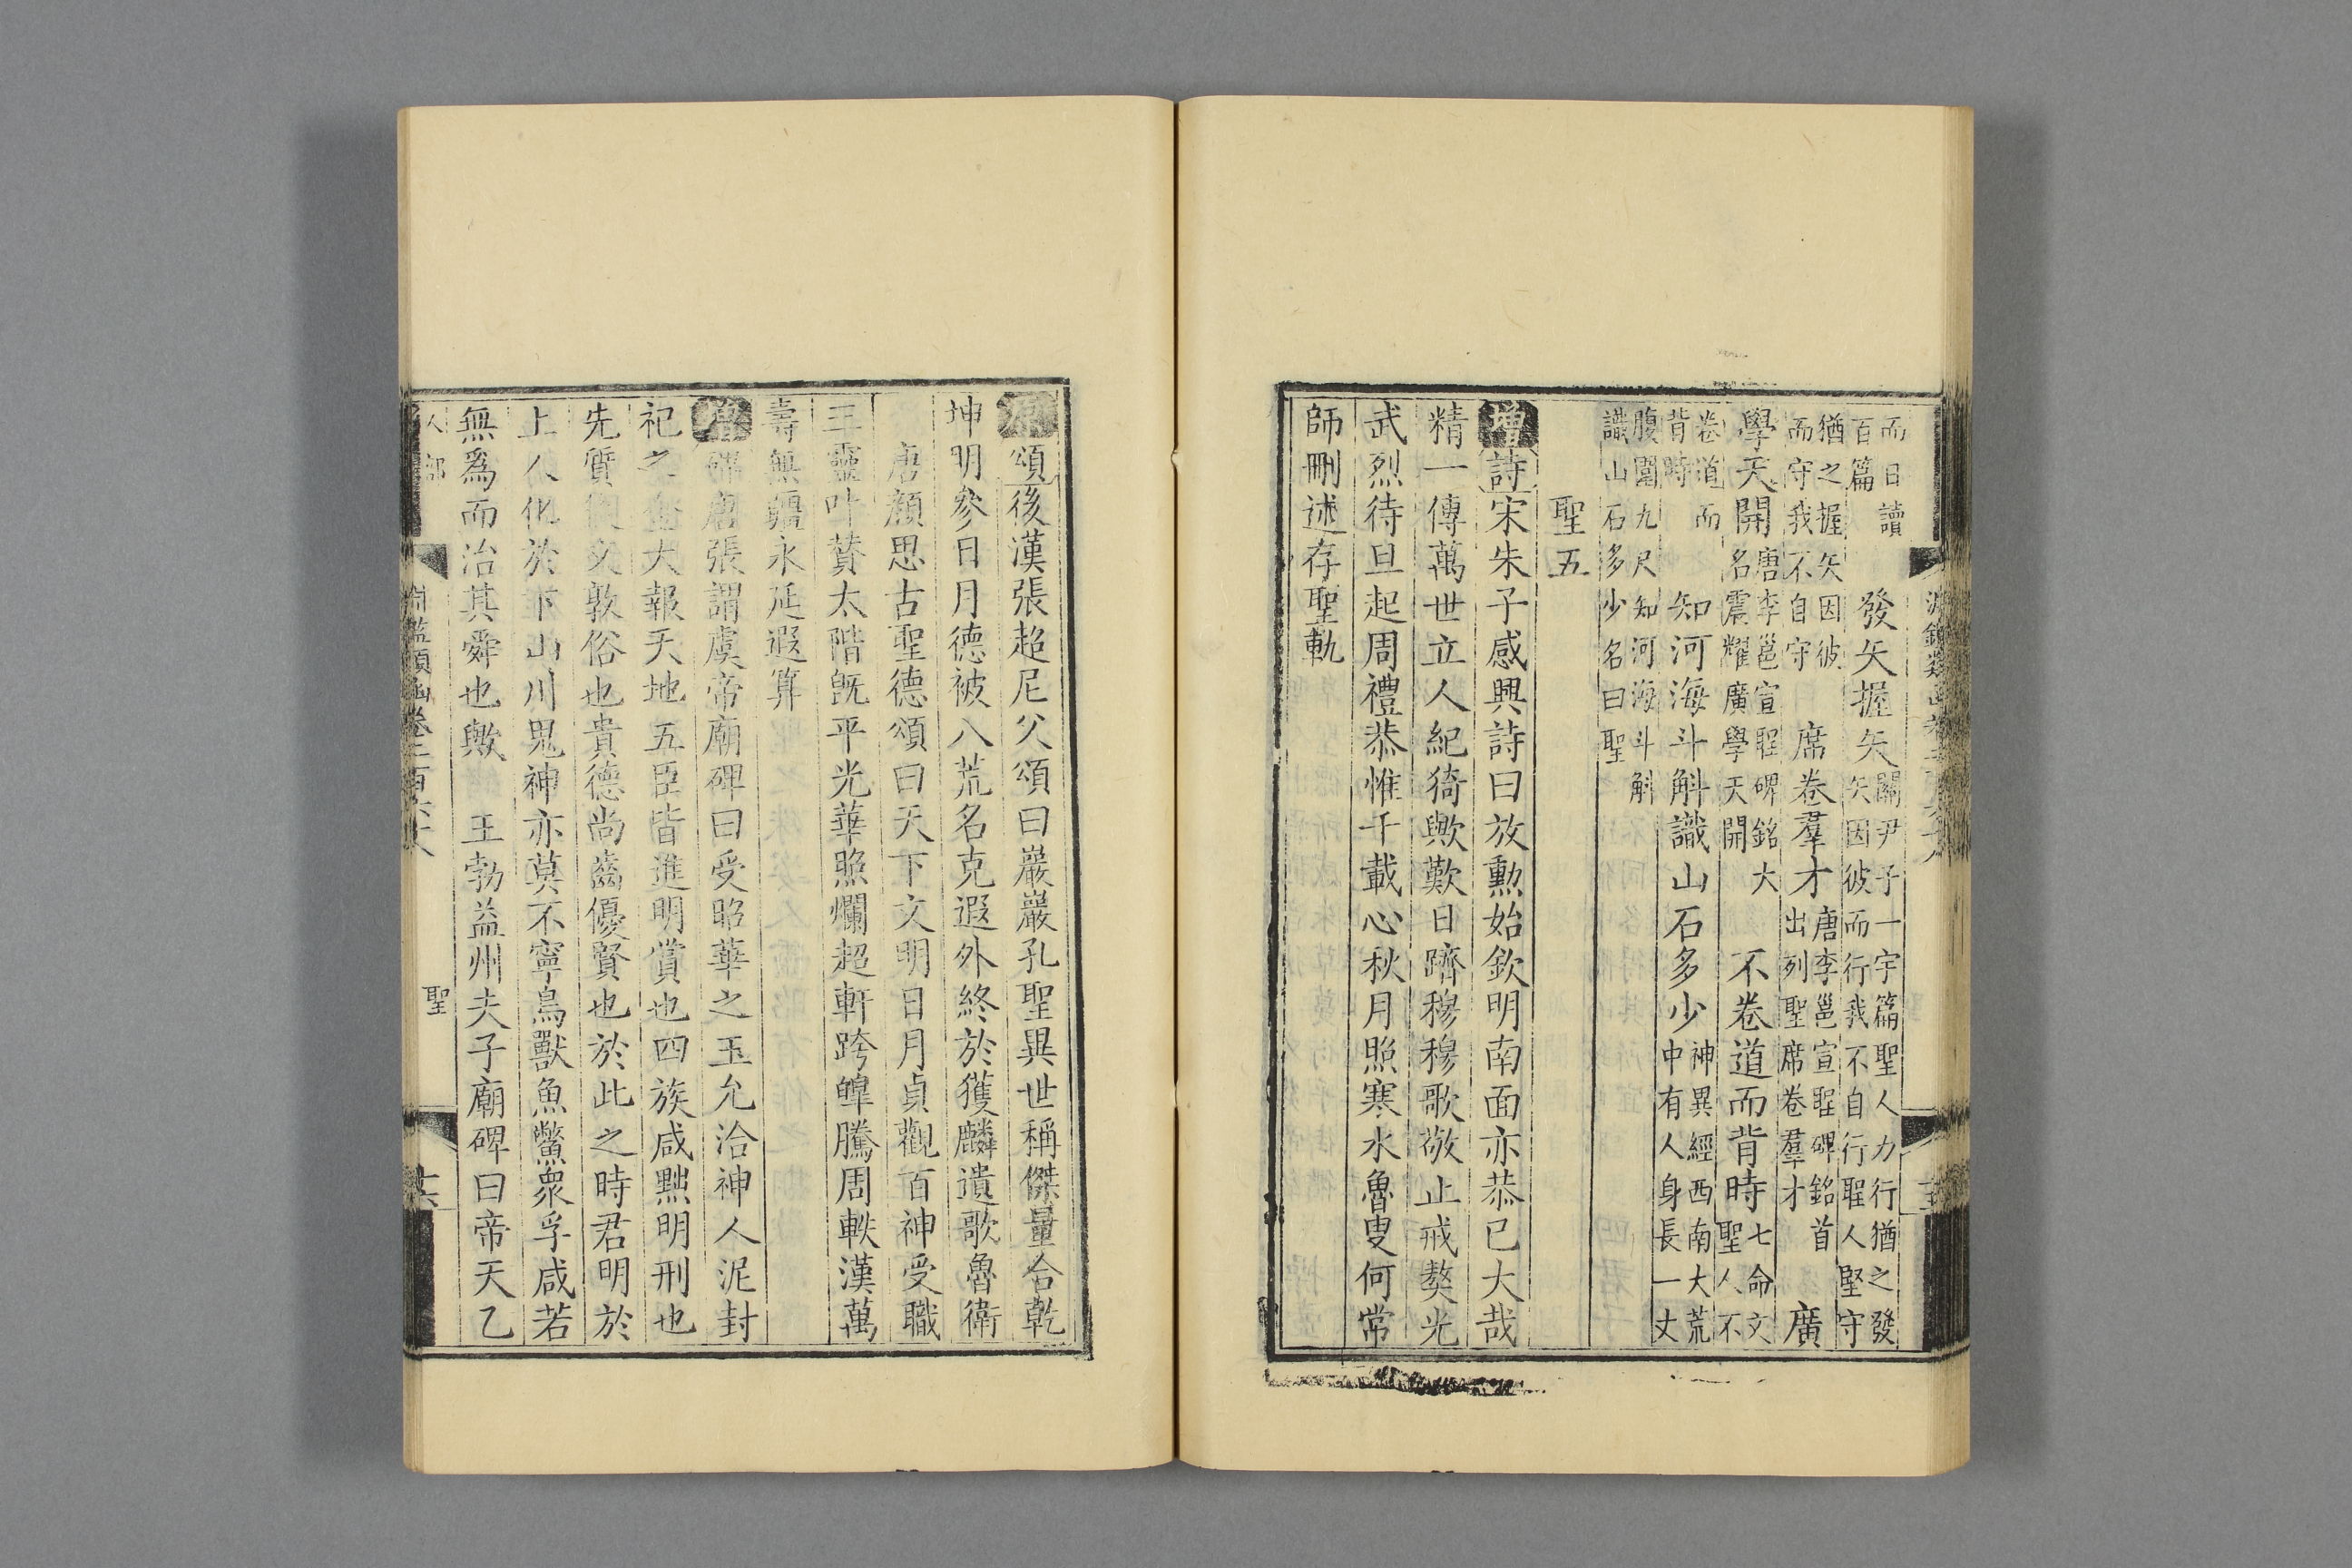 而日讀
百篇
發矢握矢
關尹子一字篇聖人力行猶之發
矢因彼而行我不自行聖人堅守
猶之握矢因彼
而守我不自守
席卷羣才
唐李邕宣聖碑銘首
出列聖席卷羣才
廣
學天開
唐李邕宣聖碑銘大
名震耀廣學天開
不卷道而背時
七命文
聖人不
卷道而
背時
知河海斗斛識山石多少
神異經西南大荒
中有人身長一丈
腹圍九尺知河海斗斛
識山石多少名曰聖
聖五
增詩宋朱子感興詩曰放勲始欽明南面亦恭已大哉
精一傳萬世立人紀猗歟歎日躋穆穆歌敬止戒獒光
武烈待旦起周禮恭惟千載心秋月照寒水魯叟何常
師刪述存聖軌
原頌後漢張超尼父頌曰巖巖孔聖異世稱傑量合乾
坤明參日月德被八荒名克遐外終於獲麟遺歌魯衛
唐顏思古聖德頌曰天下文明日月貞觀百神受職
三靈叶贊太階旣平光華照爛超軒跨皥騰周軼漢萬
壽無疆永延遐算
增碑唐張謂虞帝廟碑曰受昭華之玉允洽神人泥封
祀之壇大報天地五臣皆進明賞也四族咸黜明刑也
先質後文敦俗也貴德尚齒優賢也於此之時君明於
上人化於下山川鬼神亦莫不寧鳥獸魚鱉衆孚咸若
無爲而治其舜也歟 王勃益州夫子廟碑曰帝天乙
人部
淵鑑類函卷二百六十八
聖
十六